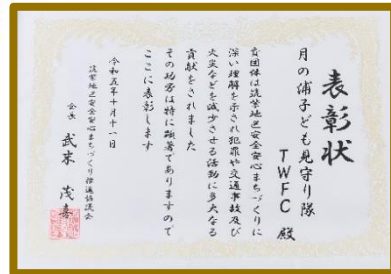 表彰状
月の浦子ども見守り隊
TWFC 殿
貴団体は筑紫地区安全安心まちづくりに
深い理解を示され犯罪や交通事故及び
火災などを減少させる活動に多大なる
貢献をされました
その功労は特に顕著でありますので
ここに表彰します
令和五年十月十一日
筑紫地区安全安心まちづくり推進協議会
会長 武末 茂喜